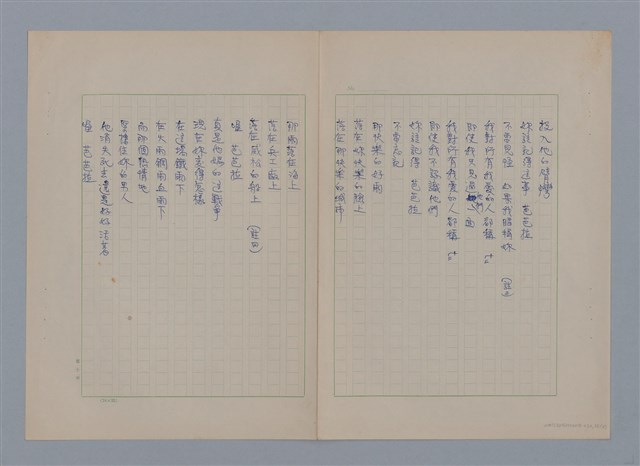 投入他的臂彎
妳該記得這事 芭芭拉
不要見怪 如果我暱稱妳 (註五)
我對所有我愛的人都稱 你
即使我只見過他們一面
我對所有我愛的人都稱 你
即使我不認識他們
妳該記得 芭芭拉
不要忘記
那快樂的好雨
落在妳快樂的臉上
落在那快樂的城市
那雨落在海上
落在兵工廠上
落在威松的船上 (註六)
噢 芭芭拉
真是他媽的這戰爭
現在妳變得怎樣
在這場鐵雨下
在火雨鋼雨血雨下
而那個熱情地
緊摟住妳的男人
他消失死去還是好好活著
噢 芭芭拉